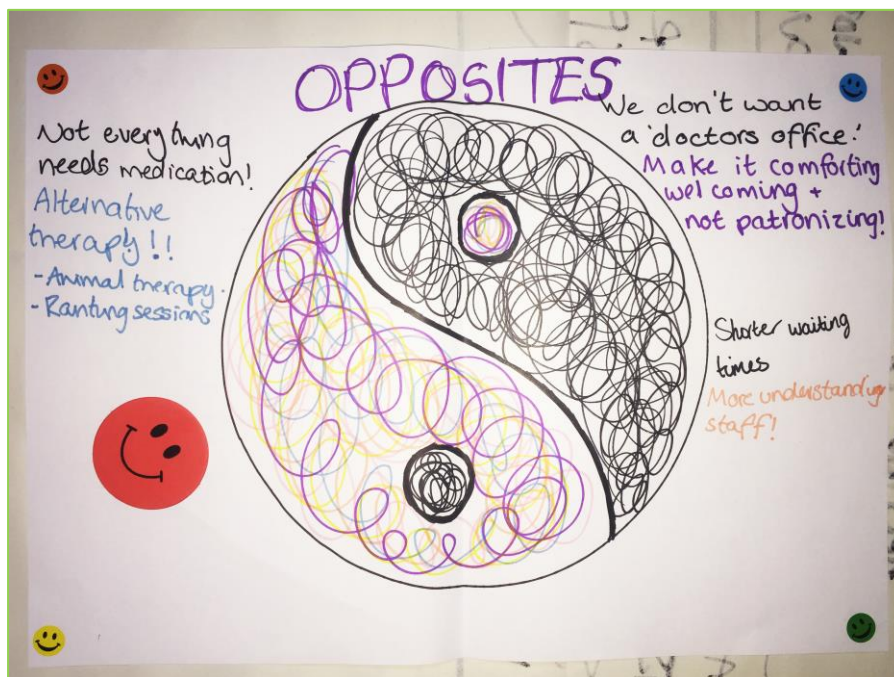 OPPOSITES
Not everything
needs medication!
Alternative
therapy!!
- Animal therapy.
- Ranting sessions
We don't want
a 'doctors office.'
Make it comforting
welcoming +
not patronizing!
Shorter waiting
times
More understanding
staff!